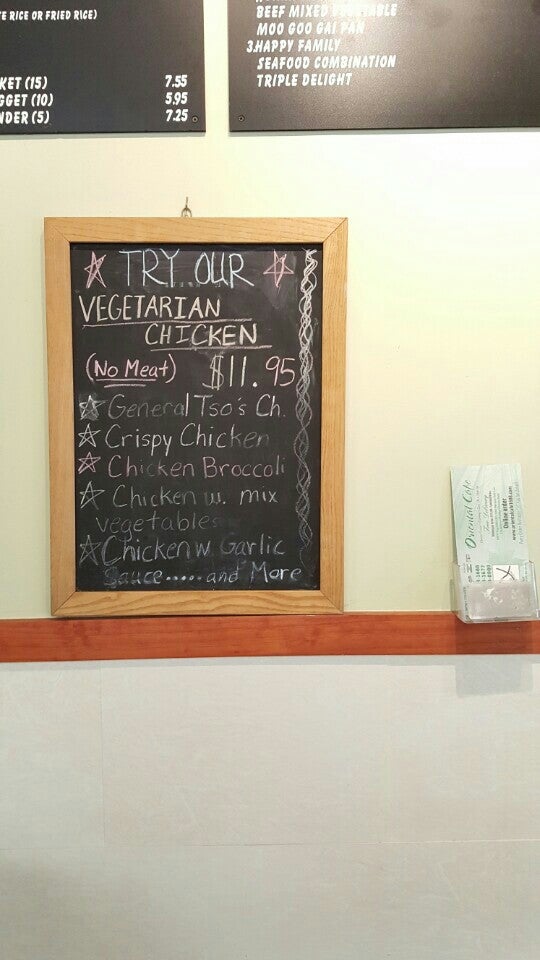 E RICE OR FRIED RICE)
KET (15) 7.55
GGET (10) 5.95
NDER (5) 7.25
BEEF MIXED VEGETABLE
MOO GOO GAI PAN
3.HAPPY FAMILY
SEAFOOD COMBINATION
TRIPLE DELIGHT
TRY OUR
VEGETARIAN
CHICKEN
(No Meat) $11.95
General Tso's Ch.
Crispy Chicken
Chicken Broccoli
Chicken w. mix
vegetables
Chicken w Garlic
Sauce.....and More
Oriental Cafe
Online order